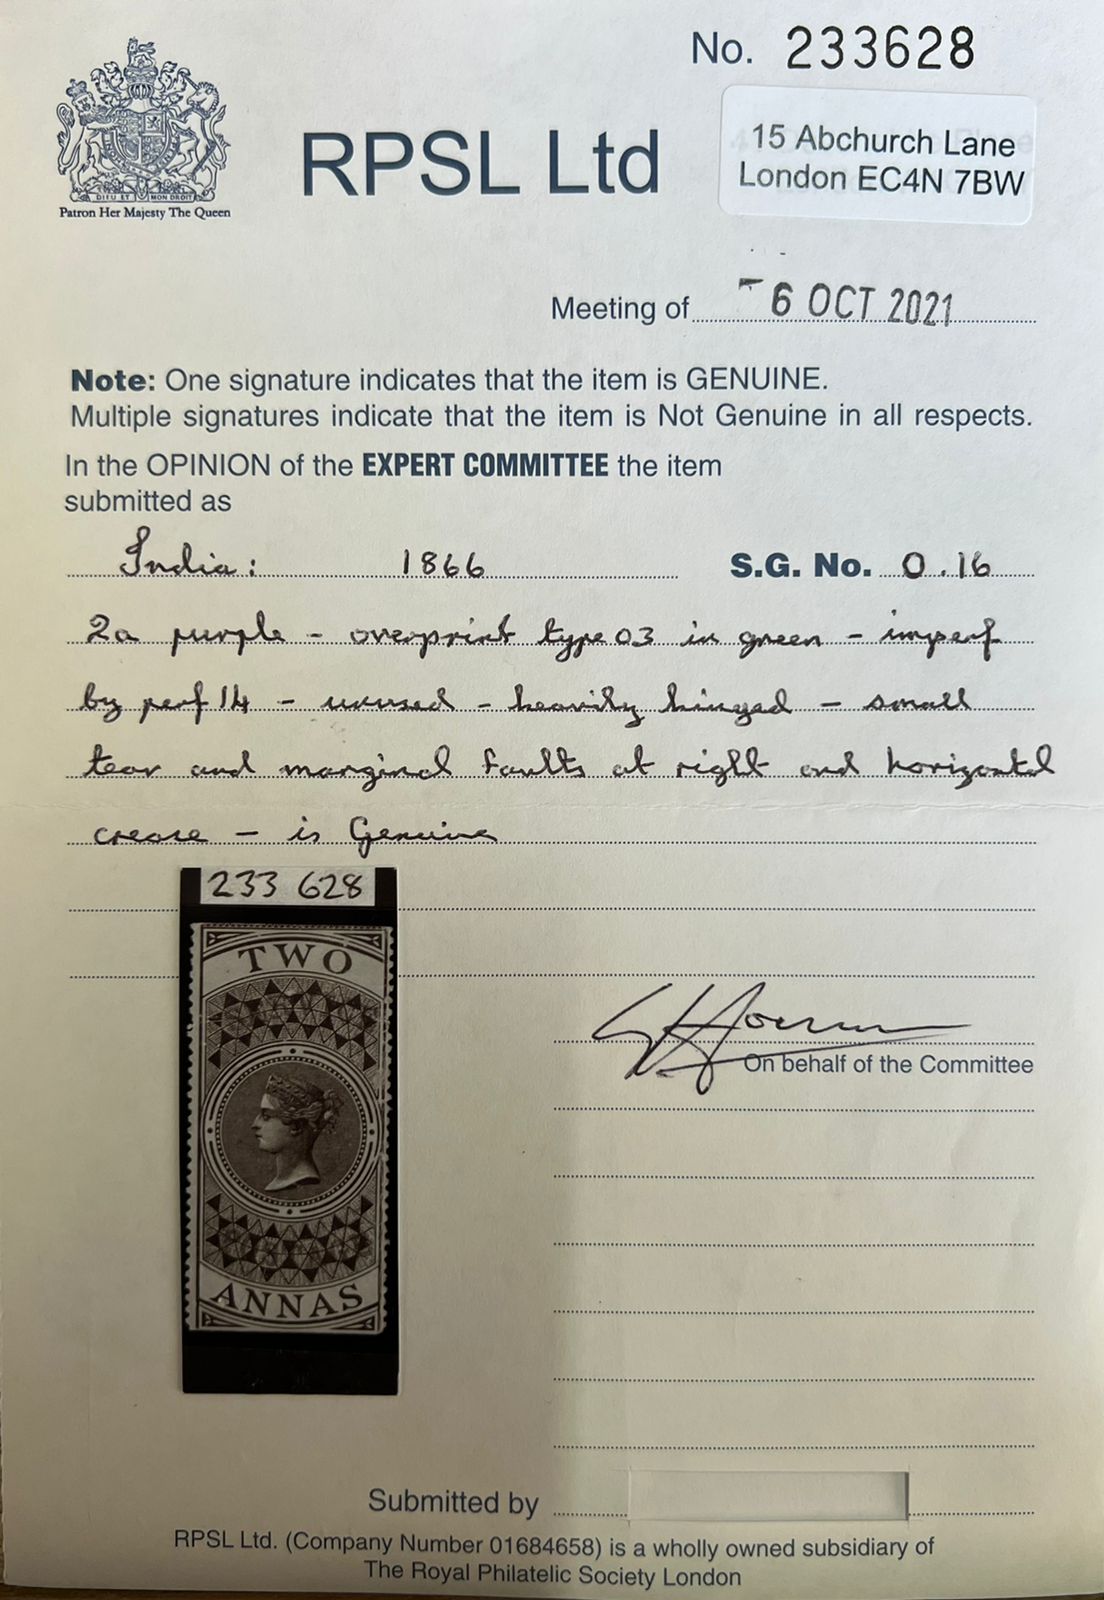 No. 233628
15 Abchurch Lane
London EC4N 7BW
RPSL Ltd
DIEU ET MON DROIT
Patron Her Majesty The Queen
Meeting of - 6 OCT 2021
Note: One signature indicates that the item is GENUINE.
Multiple signatures indicate that the item is Not Genuine in all respects.
In the OPINION of the EXPERT COMMITTEE the item
submitted as
India: 1866 S.G. No. O.16
2a purple - overprint type O3 in green - imperf
by perf 14 - unused - heavily hinged - small
tear and marginal faults at right and horizontal
crease - is Genuine
233 628
TWO
ANNAS
On behalf of the Committee
Submitted by
RPSL Ltd. (Company Number 01684658) is a wholly owned subsidiary of
The Royal Philatelic Society London